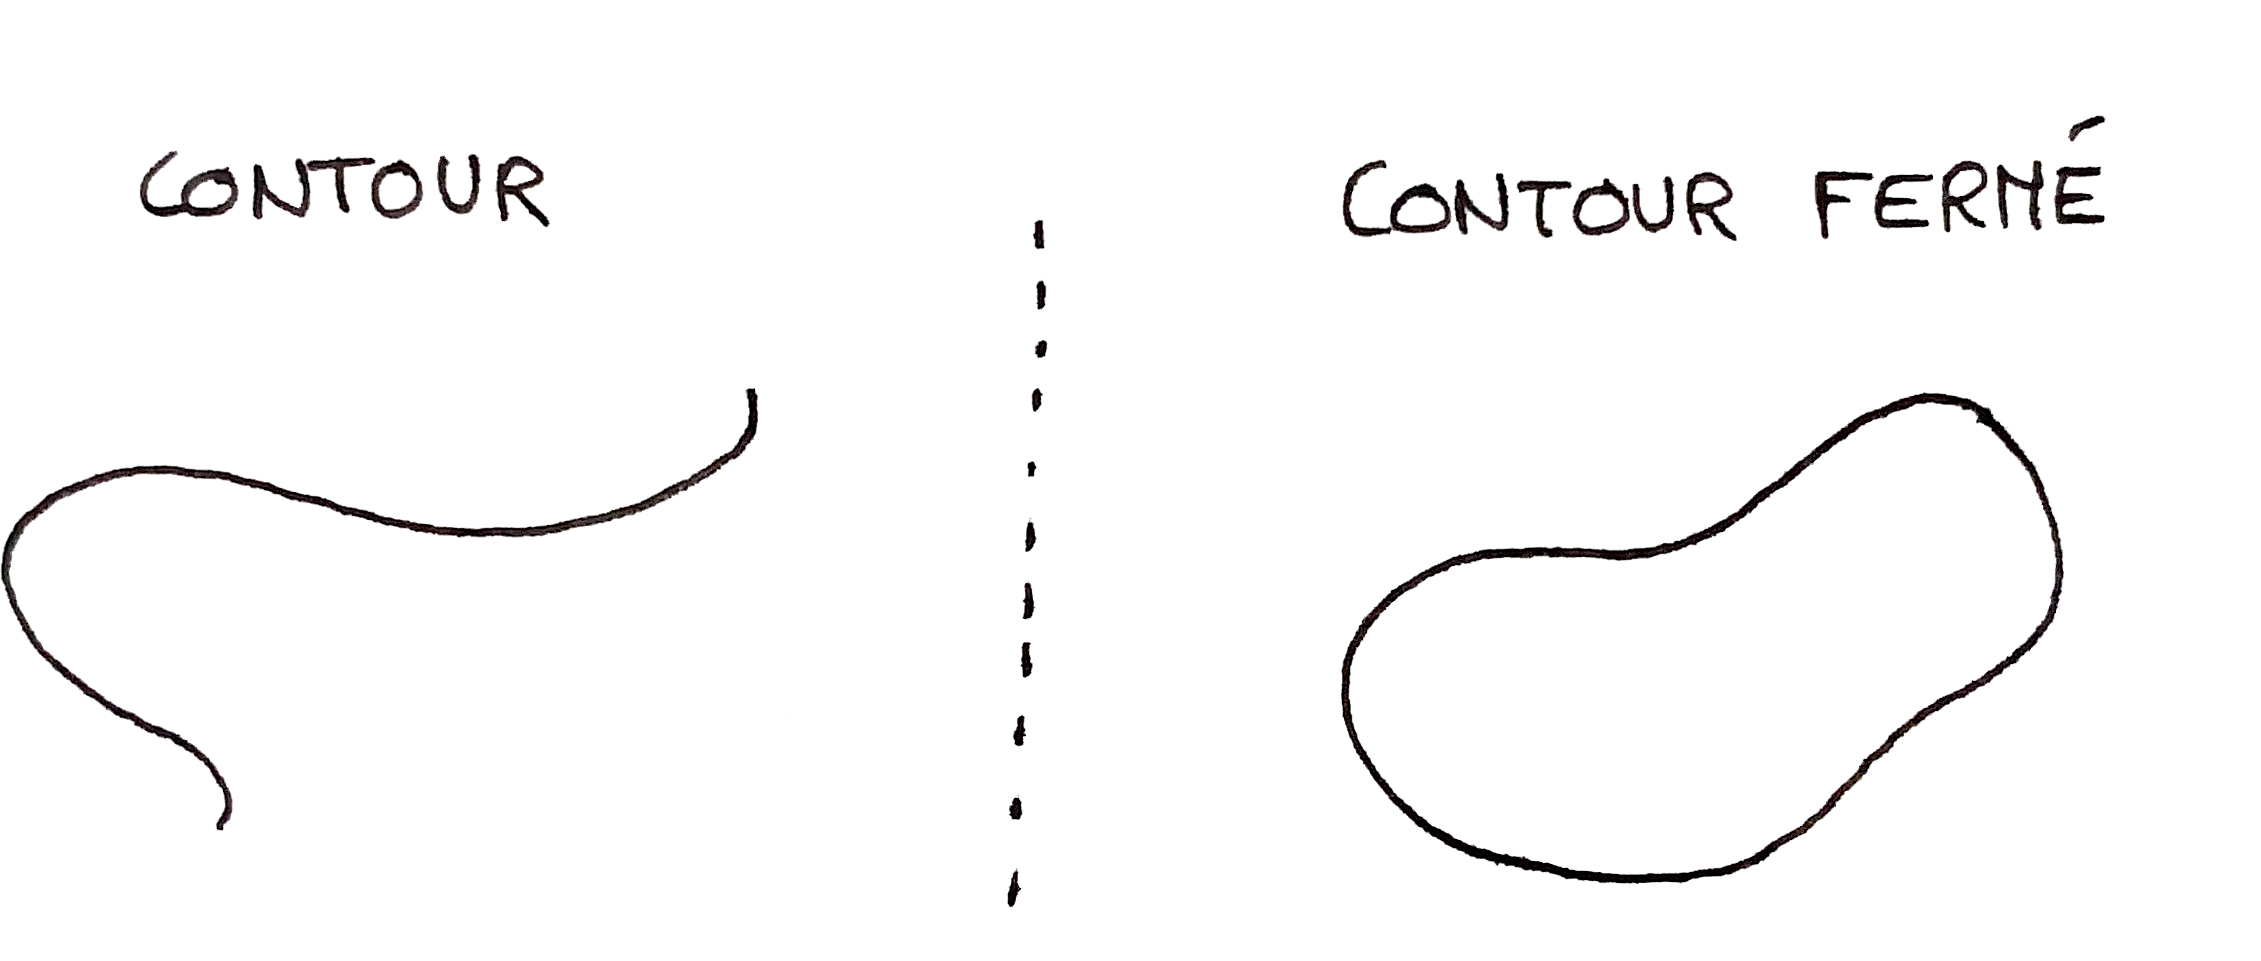 CONTOUR
CONTOUR FERMÉ